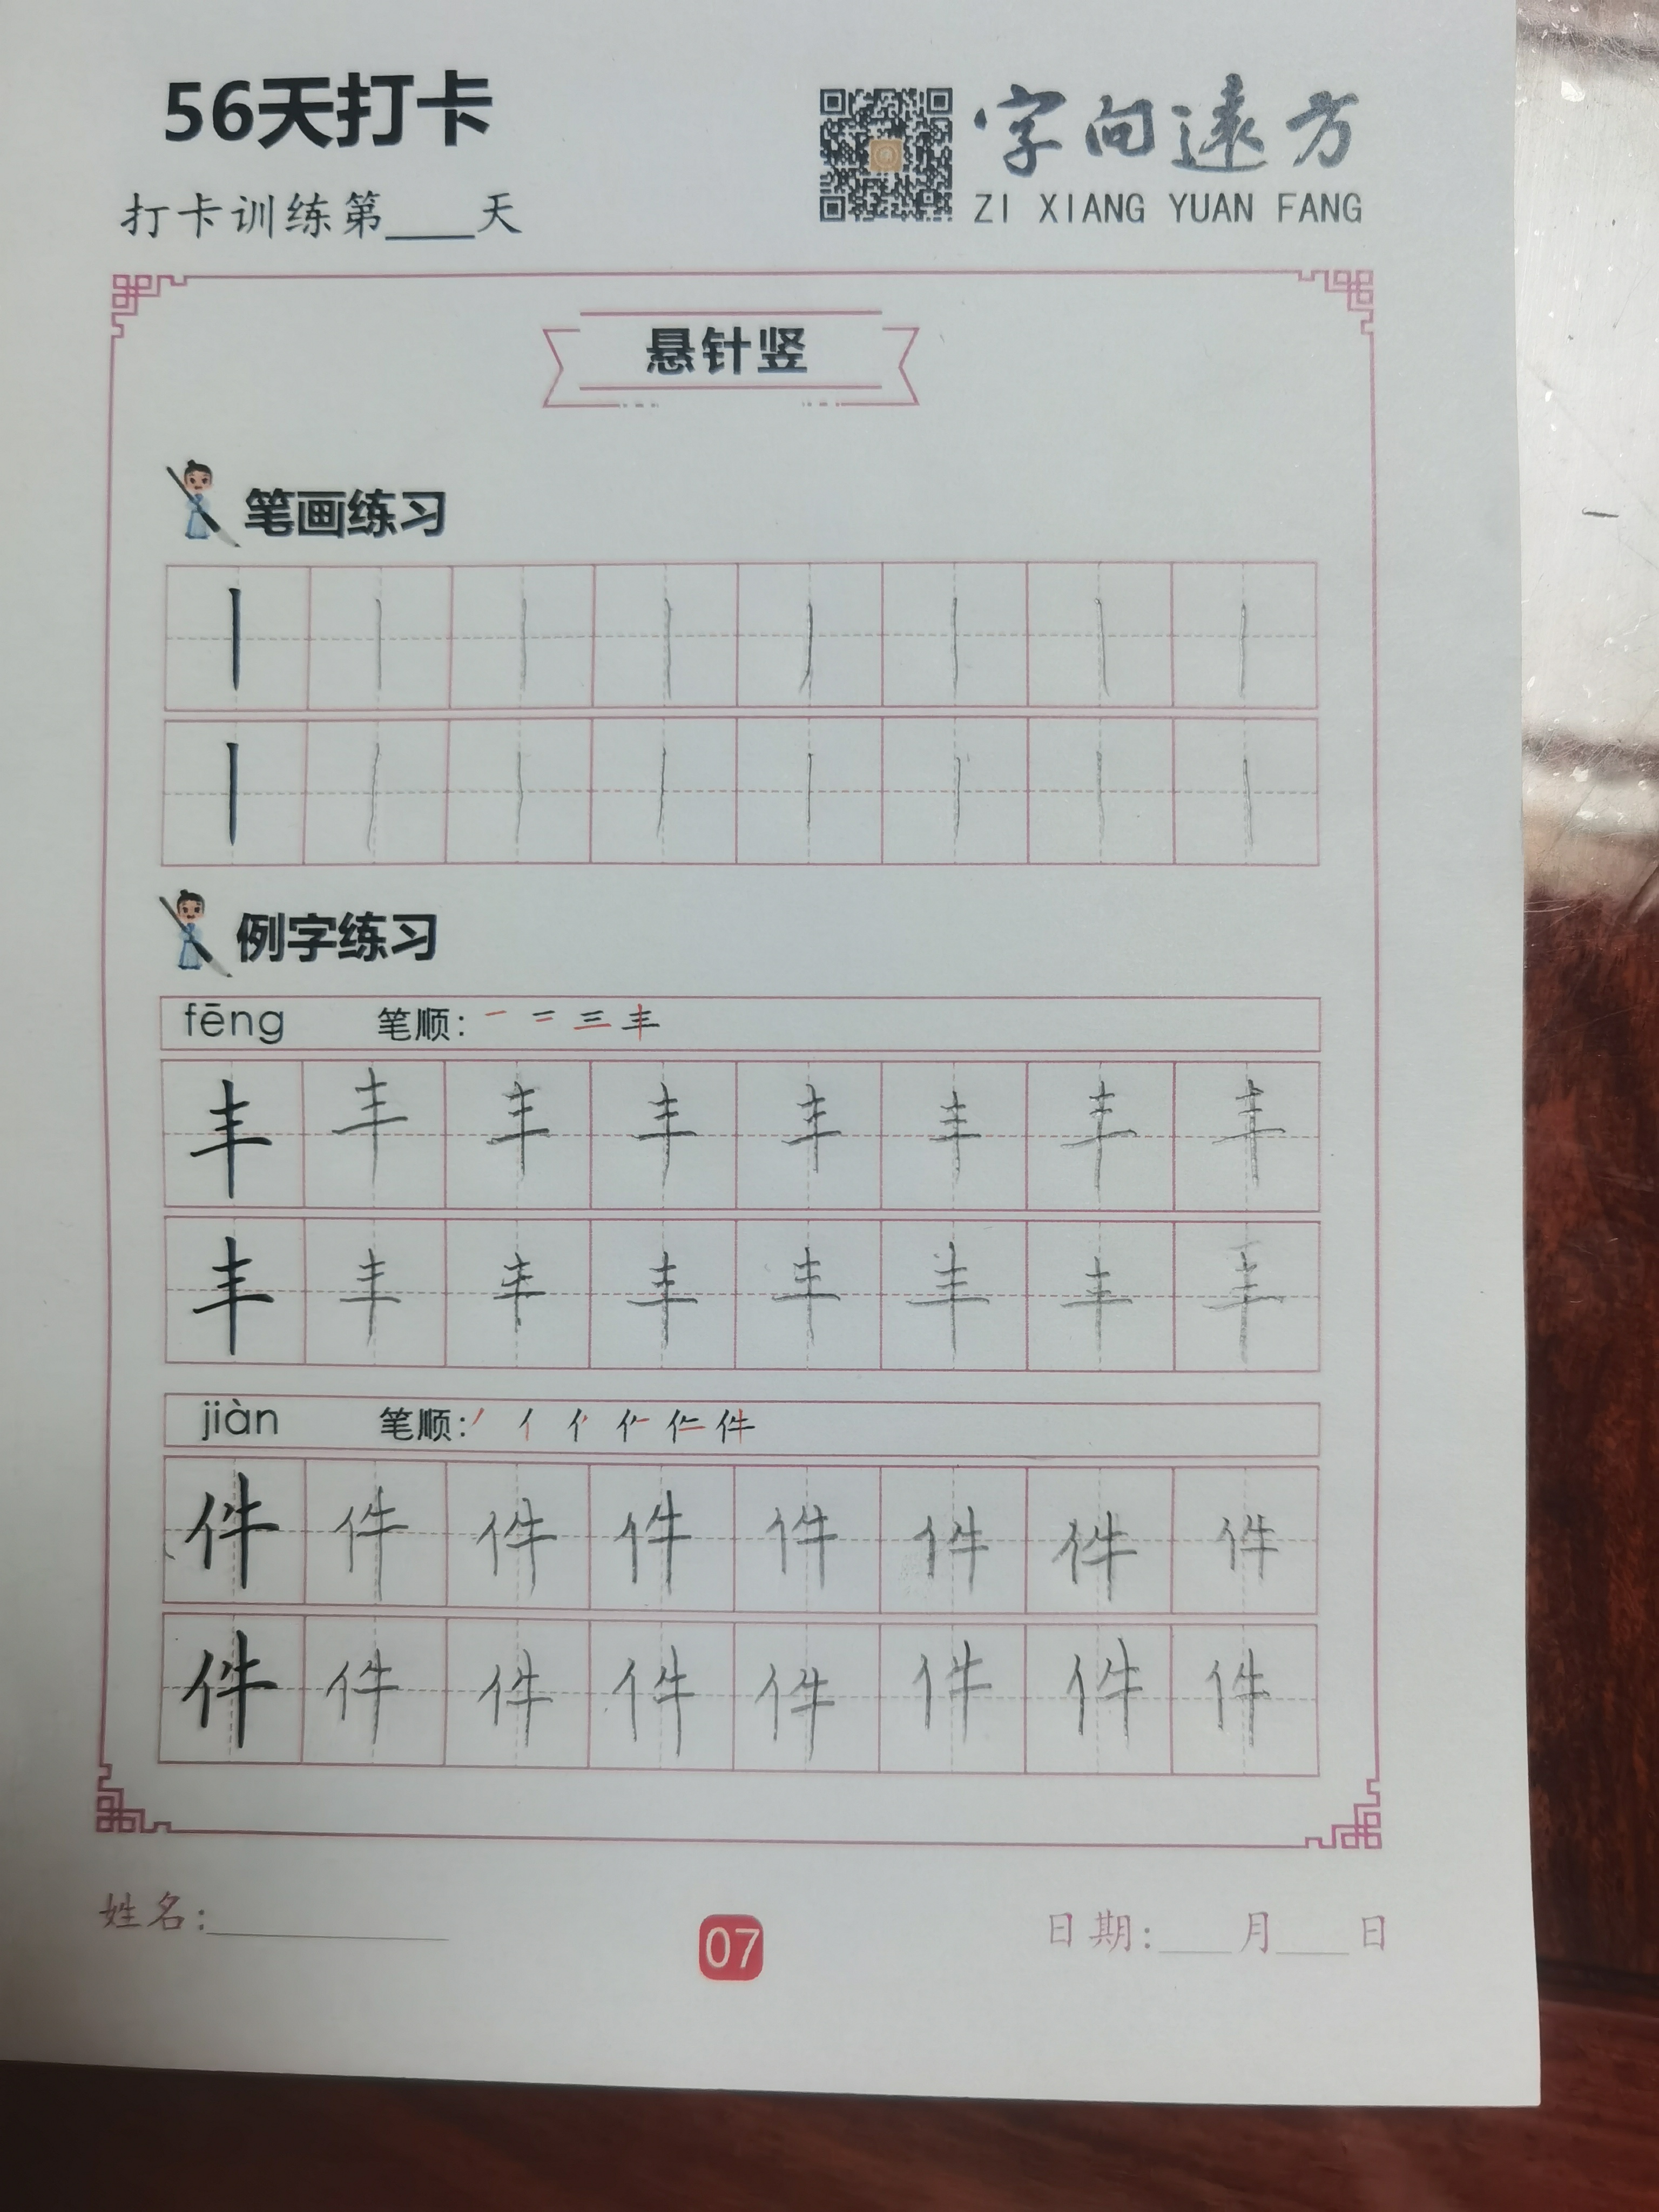 56天打卡
字向遠方
打卡训练第____天
ZI XIANG YUAN FANG
悬针竖
笔画练习
丨 丨 丨 丨 丨 丨 丨 丨
丨 丨 丨 丨 丨 丨 丨 丨
例字练习
fēng 笔顺: 一 二 三 丰
丰 丰 丰 丰 丰 丰 丰 丰
丰 丰 丰 丰 丰 丰 丰 丰
jiàn 笔顺: 丿 亻 件
件 件 件 件 件 件 件 件
件 件 件 件 件 件 件 件
姓名:__________ 07 日期:____月____日